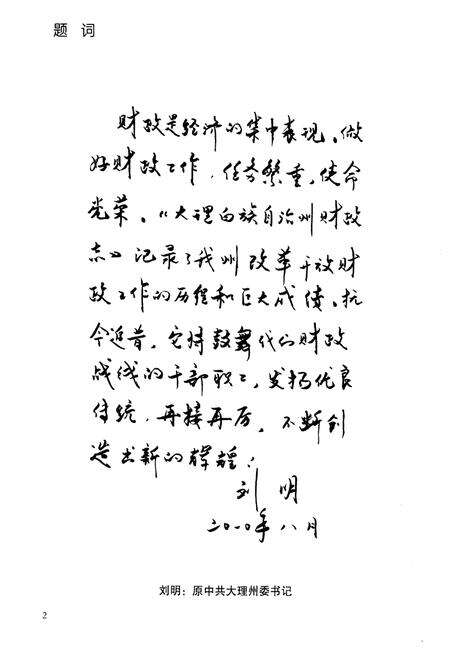 题 词
财政是经济的集中表现。做
好财政工作,任务繁重,使命
光荣。《大理白族自治州财政
志》记录了我州改革开放财
政工作的历程和巨大成绩。抚
今追昔,它将鼓舞一代代财政
战线的干部职工,发扬优良
传统,再接再厉,不断创
造出新的辉煌!
刘 明
二〇一〇年八月
刘明:原中共大理州委书记
2